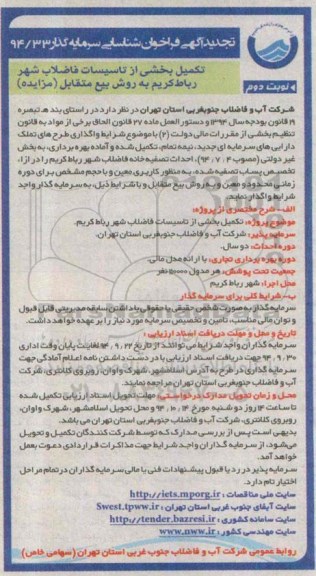 تجدید آگهی فراخوان شناسایی سرمایه گذار ۹۴/۳۳
تکمیل بخشی از تاسیسات فاضلاب شهر
رباط کریم به روش بیع متقابل (مزایده)
نوبت دوم
شرکت آب و فاضلاب جنوبغربی استان تهران در نظر دارد در راستای بند هـ تبصره
۱۹ قانون بودجه سال ۱۳۹۴ و دستورالعمل ماده ۲۷ قانون الحاق برخی از مواد به قانون
تنظیم بخشی از مقررات مالی دولت (۲) با موضوع شرایط واگذاری طرح های تملک
دارایی های سرمایه ای جدید، نیمه تمام، تکمیل شده و آماده بهره برداری، به بخش
غیر دولتی (مصوب ۹۴،۰۷،۰۴)، احداث تصفیه خانه فاضلاب شهر رباط کریم را در ازاء
تخصیص پساب تصفیه شده، به منظور کاربری معین و با حجم مشخص برای دوره
زمانی محدود و معین و به روش بیع متقابل و با شرایط ذیل، به سرمایه گذار واجد
شرایط واگذار نماید.
الف- شرح مختصری از پروژه:
موضوع پروژه: تکمیل بخشی از تاسیسات فاضلاب شهر رباط کریم
سرمایه پذیر: شرکت آب و فاضلاب جنوبغربی استان تهران.
دوره احداث: دو سال.
دوره بهره برداری تجاری: با ارائه مدل مالی.
جمعیت تحت پوشش: هر مدول ۵۰۰۰۰ نفر
محل اجرا: شهر رباط کریم
ب- شرایط کلی برای سرمایه گذار
سرمایه گذار به صورت شخص حقیقی یا حقوقی با داشتن سابقه مدیریتی قابل قبول
و توان مالی مناسب، تأمین و تخصیص سرمایه مورد نیاز را بر عهده خواهد داشت.
تاریخ و محل و مهلت دریافت اسناد ارزیابی:
سرمایه گذاران واجد شرایط می توانند از تاریخ ۹۴،۹،۲۲ لغایت پایان وقت اداری
۹۴،۹،۳۰ جهت دریافت اسناد ارزیابی با در دست داشتن نامه اعلام آمادگی جهت
سرمایه گذاری در طرح به آدرس اسلامشهر، شهرک واوان، روبروی کلانتری، شرکت
آب و فاضلاب جنوبغربی استان تهران مراجعه نمایند.
محل و زمان تحویل مدارک درخواستی: مهلت تحویل اسناد ارزیابی تکمیل شده
تا ساعت ۱۴ روز دو شنبه مورخ ۹۴،۱۰،۱۴ و محل تحویل اسلامشهر، شهرک واوان،
روبروی کلانتری، شرکت آب و فاضلاب جنوبغربی استان تهران می باشد.
بدیهی است پس از بررسی مدارک که توسط شرکت کنندگان تکمیل و تحویل
می شود، از سرمایه گذاران واجد شرایط جهت مذاکرات قراردادی دعوت بعمل
خواهد آمد.
سرمایه پذیر در رد یا قبول پیشنهادات فنی یا مالی سرمایه گذاران در تمام مراحل
اختیار تام دارد.
سایت ملی مناقصات : http://iets.mporg.ir
سایت آبفای جنوب غربی استان تهران : Swest.tpww.ir
سایت سامانه کشوری : http://tender.bazresi.ir
سایت مهندسی کشور : www.nww.ir
روابط عمومی شرکت آب و فاضلاب جنوب غربی استان تهران (سهامی خاص)